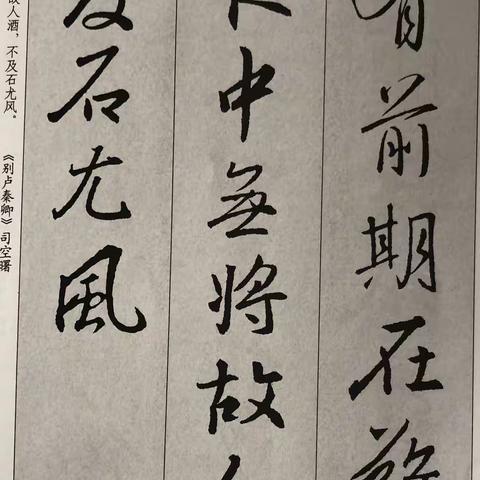 有前期在
中無將故
及石尤風
故人酒，不及石尤风。
《别卢秦卿》司空曙